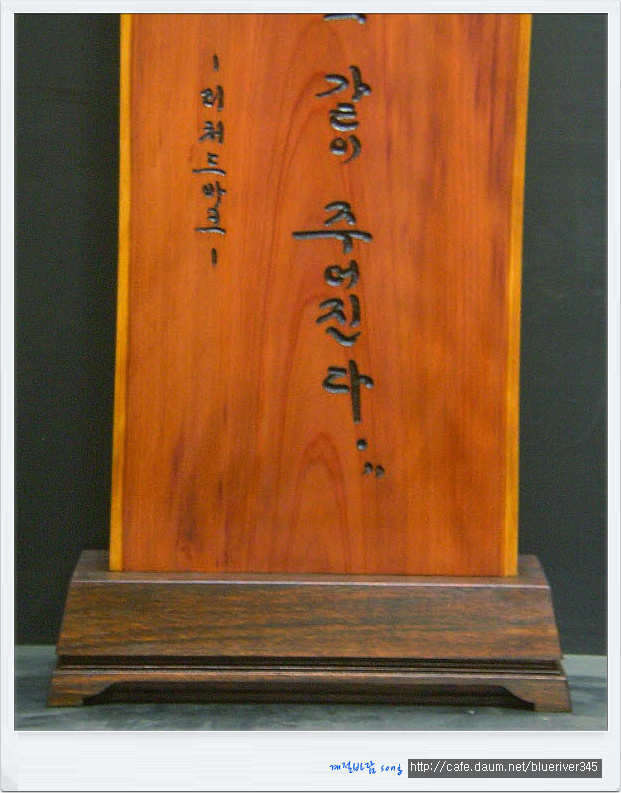 같이 주어진다.”
- 리처드바크 -
계절바람 song
http://cafe.daum.net/blueriver345